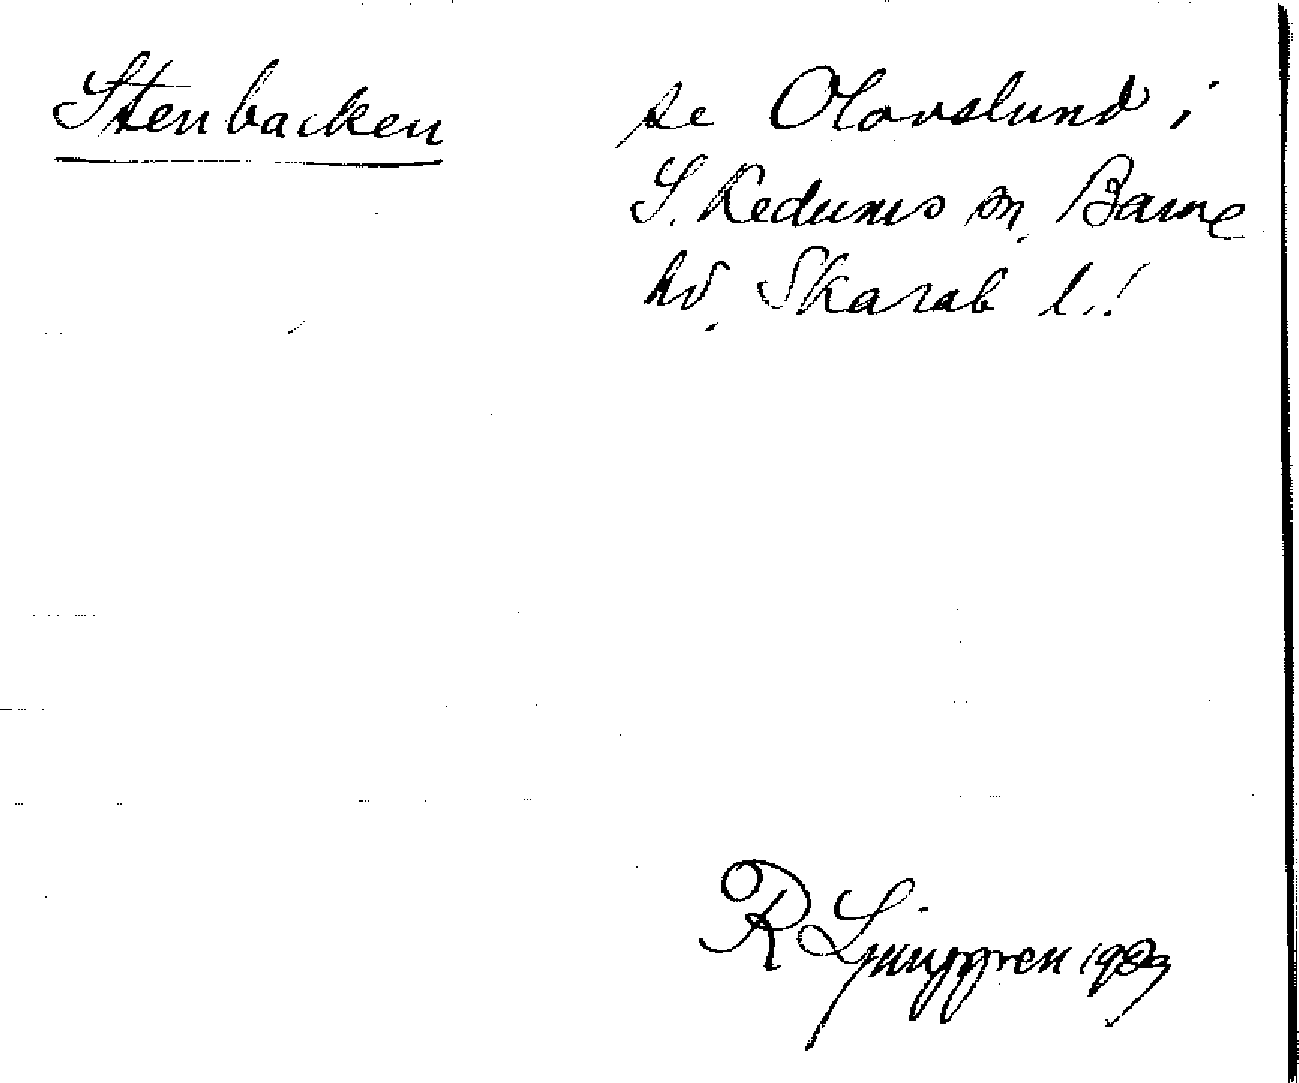 Stenbacken
se Olovslund i
S. Kedums sn. Barne
hd. Skarab l.!
R Ljunggren